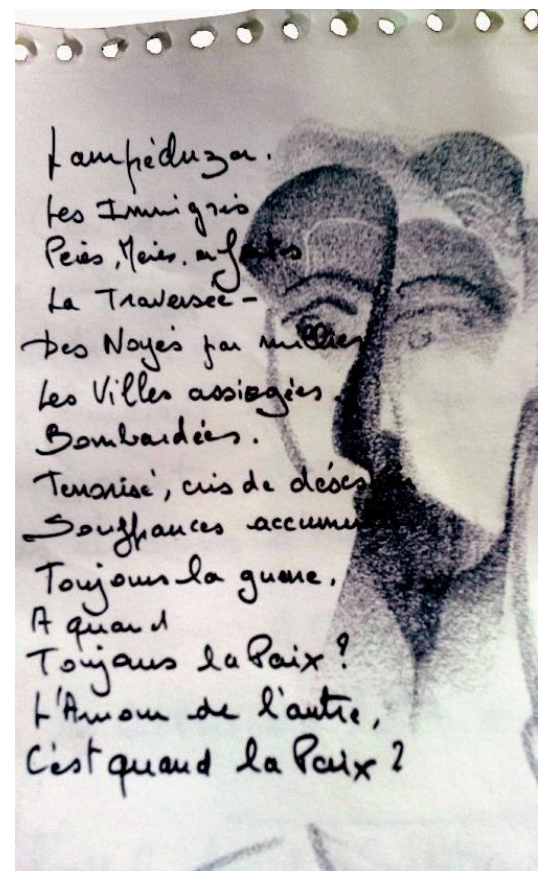 Lampéduza.
Les Immigrés
Pères, Mères, enfants
La Traversée -
Des Noyés par milliers
Les Villes assiégées.
Bombardées.
Terrorisé, cris de
Souffrances
Toujours la guerre.
A quand
Toujours la Paix ?
L'Amour de l'autre,
C'est quand la Paix ?